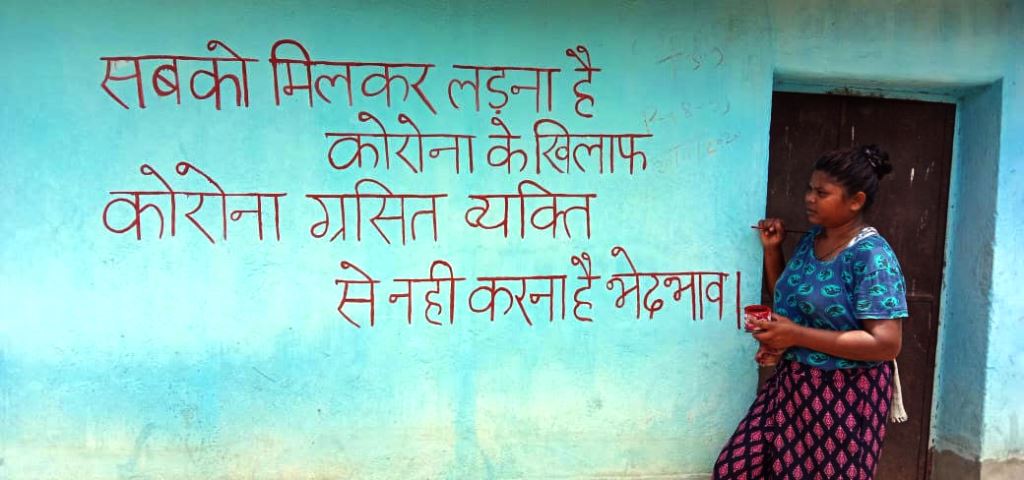 सबको मिलकर लड़ना है
कोरोना के खिलाफ
कोरोना ग्रसित व्यक्ति
से नही करना है भेदभाव।